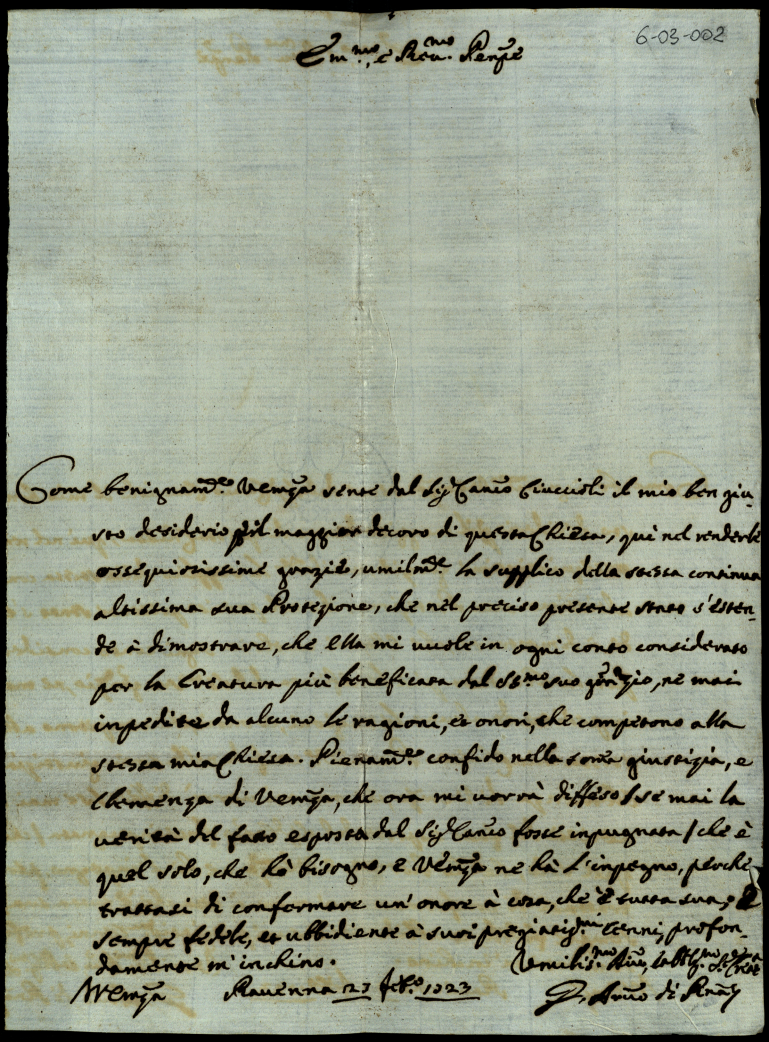 6-03-002
Em.mo, e Rev.mo Prenpe
Come benignam.te Vemza sente dal Sig. Canco Ciuccioli il mio ben giu-
sto desiderio p il maggior decoro di questa Chiesa, quì nel renderle
ossequiosissime grazie, umilm.te la supplico della stessa continua
altissima sua Protezione, che nel preciso presente stato s'esten-
de à dimostrare, che ella mi vuole in ogni conto considerato
per la Creatura più beneficata dal St.mo suo, ne mai
inpedite da alcuno le ragioni, et onori, che competono alla
stessa mia Chiesa. Pienam.te confido nella somma giustizia, e
Clemenza di Vemza, che ora mi vorrà diffeso / se mai la
verità del fatto esposta dal Sig. Canco fosse inpugnata / che è
quel solo, che hò bisogno, e Vemza ne hà l'inpegno, perche
trattasi di conformare un' onore à cosa, che è tutta sua, e
sempre fedele, et ubbidiente à suoi pregiatis.mi cenni, profon-
damente m'inchino.
Umilis.mo
Vemza Ravenna 27 feb.o 1723
di